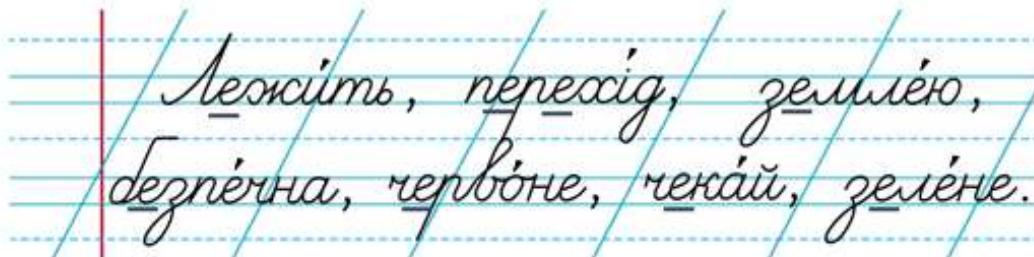 Лежи́ть, перехі́д, земле́ю,
безпе́чна, черво́не, чека́й, зеле́не.